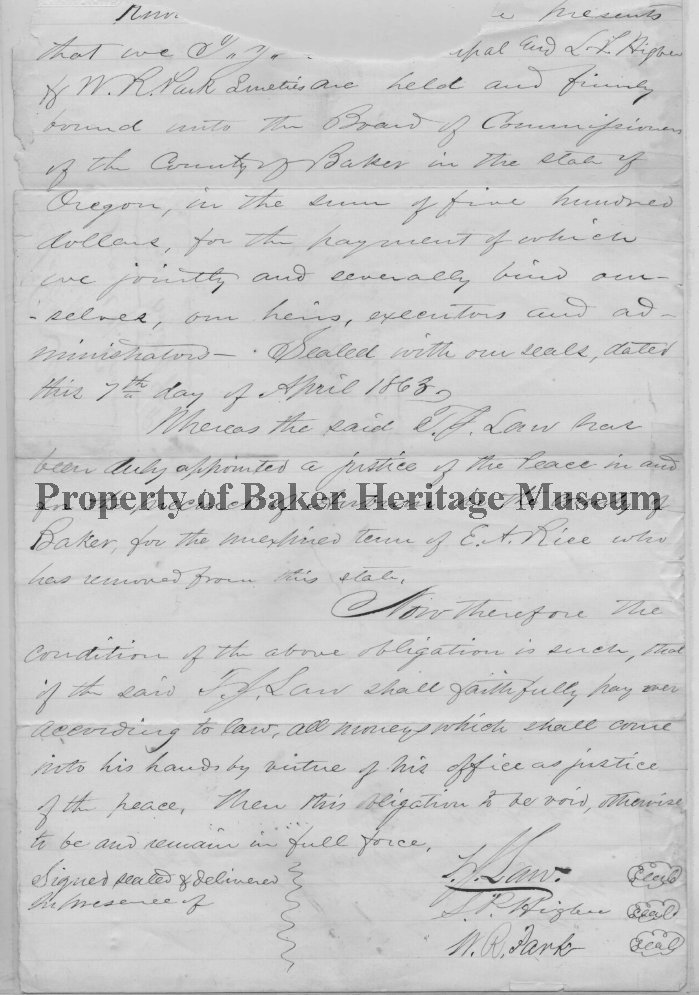 presents
that we T. J. and L. P. Higbee
& W. R. Park Sureties are held and firmly
bound unto the Board of Commissioners
of the County of Baker in the state of
Oregon, in the sum of five hundred
dollars, for the payment of which
we jointly and severally bind our-
-selves, our heirs, executors and ad-
ministrators — . Sealed with our seals, dated
this 7th day of April 1863
Whereas the said T. J. Law has
been duly appointed a justice of the Peace in and
Property of Baker Heritage Museum
for the precinct of in the County of
Baker, for the unexpired term of E. A. Rice who
has removed from this state.
Now therefore the
condition of the above obligation is such, that
if the said T. J. Law shall faithfully pay over
according to law, all moneys which shall come
into his hands by virtue of his office as justice
of the peace, then this obligation to be void, otherwise
to be and remain in full force.
Signed sealed & delivered T. J. Law. Seal
in presence of L. P. Higbee Seal
W. R. Park Seal